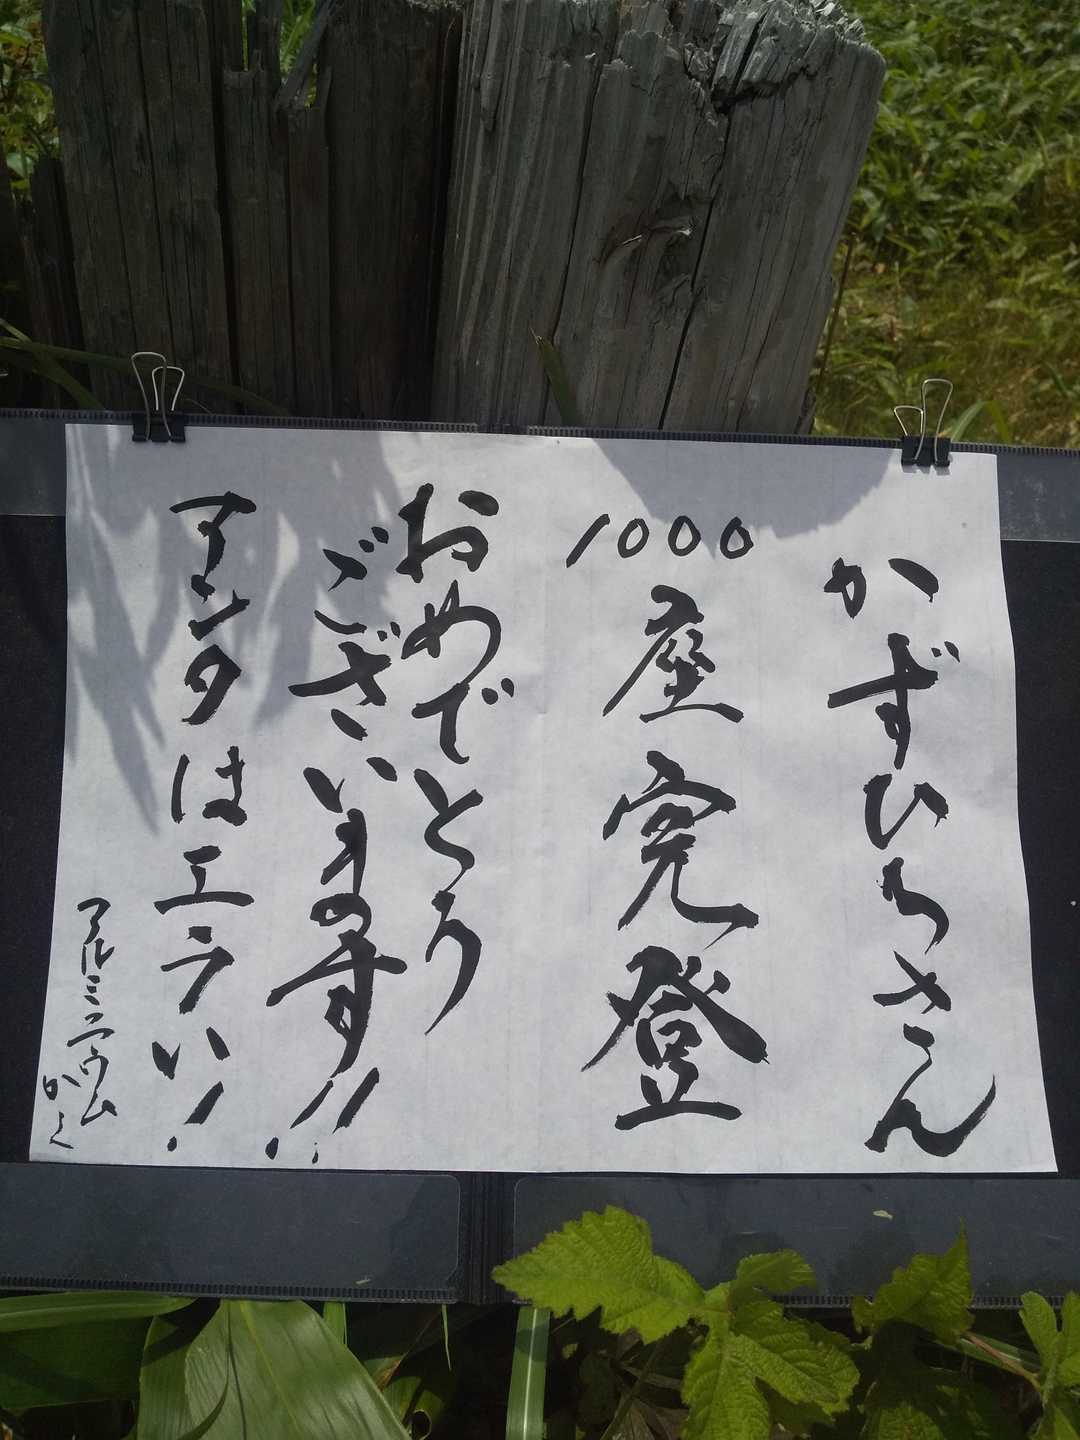 かずひろさん
1000座完登
おめでとう
ございます!!
アンタはエラい!
アルミニウム
かく